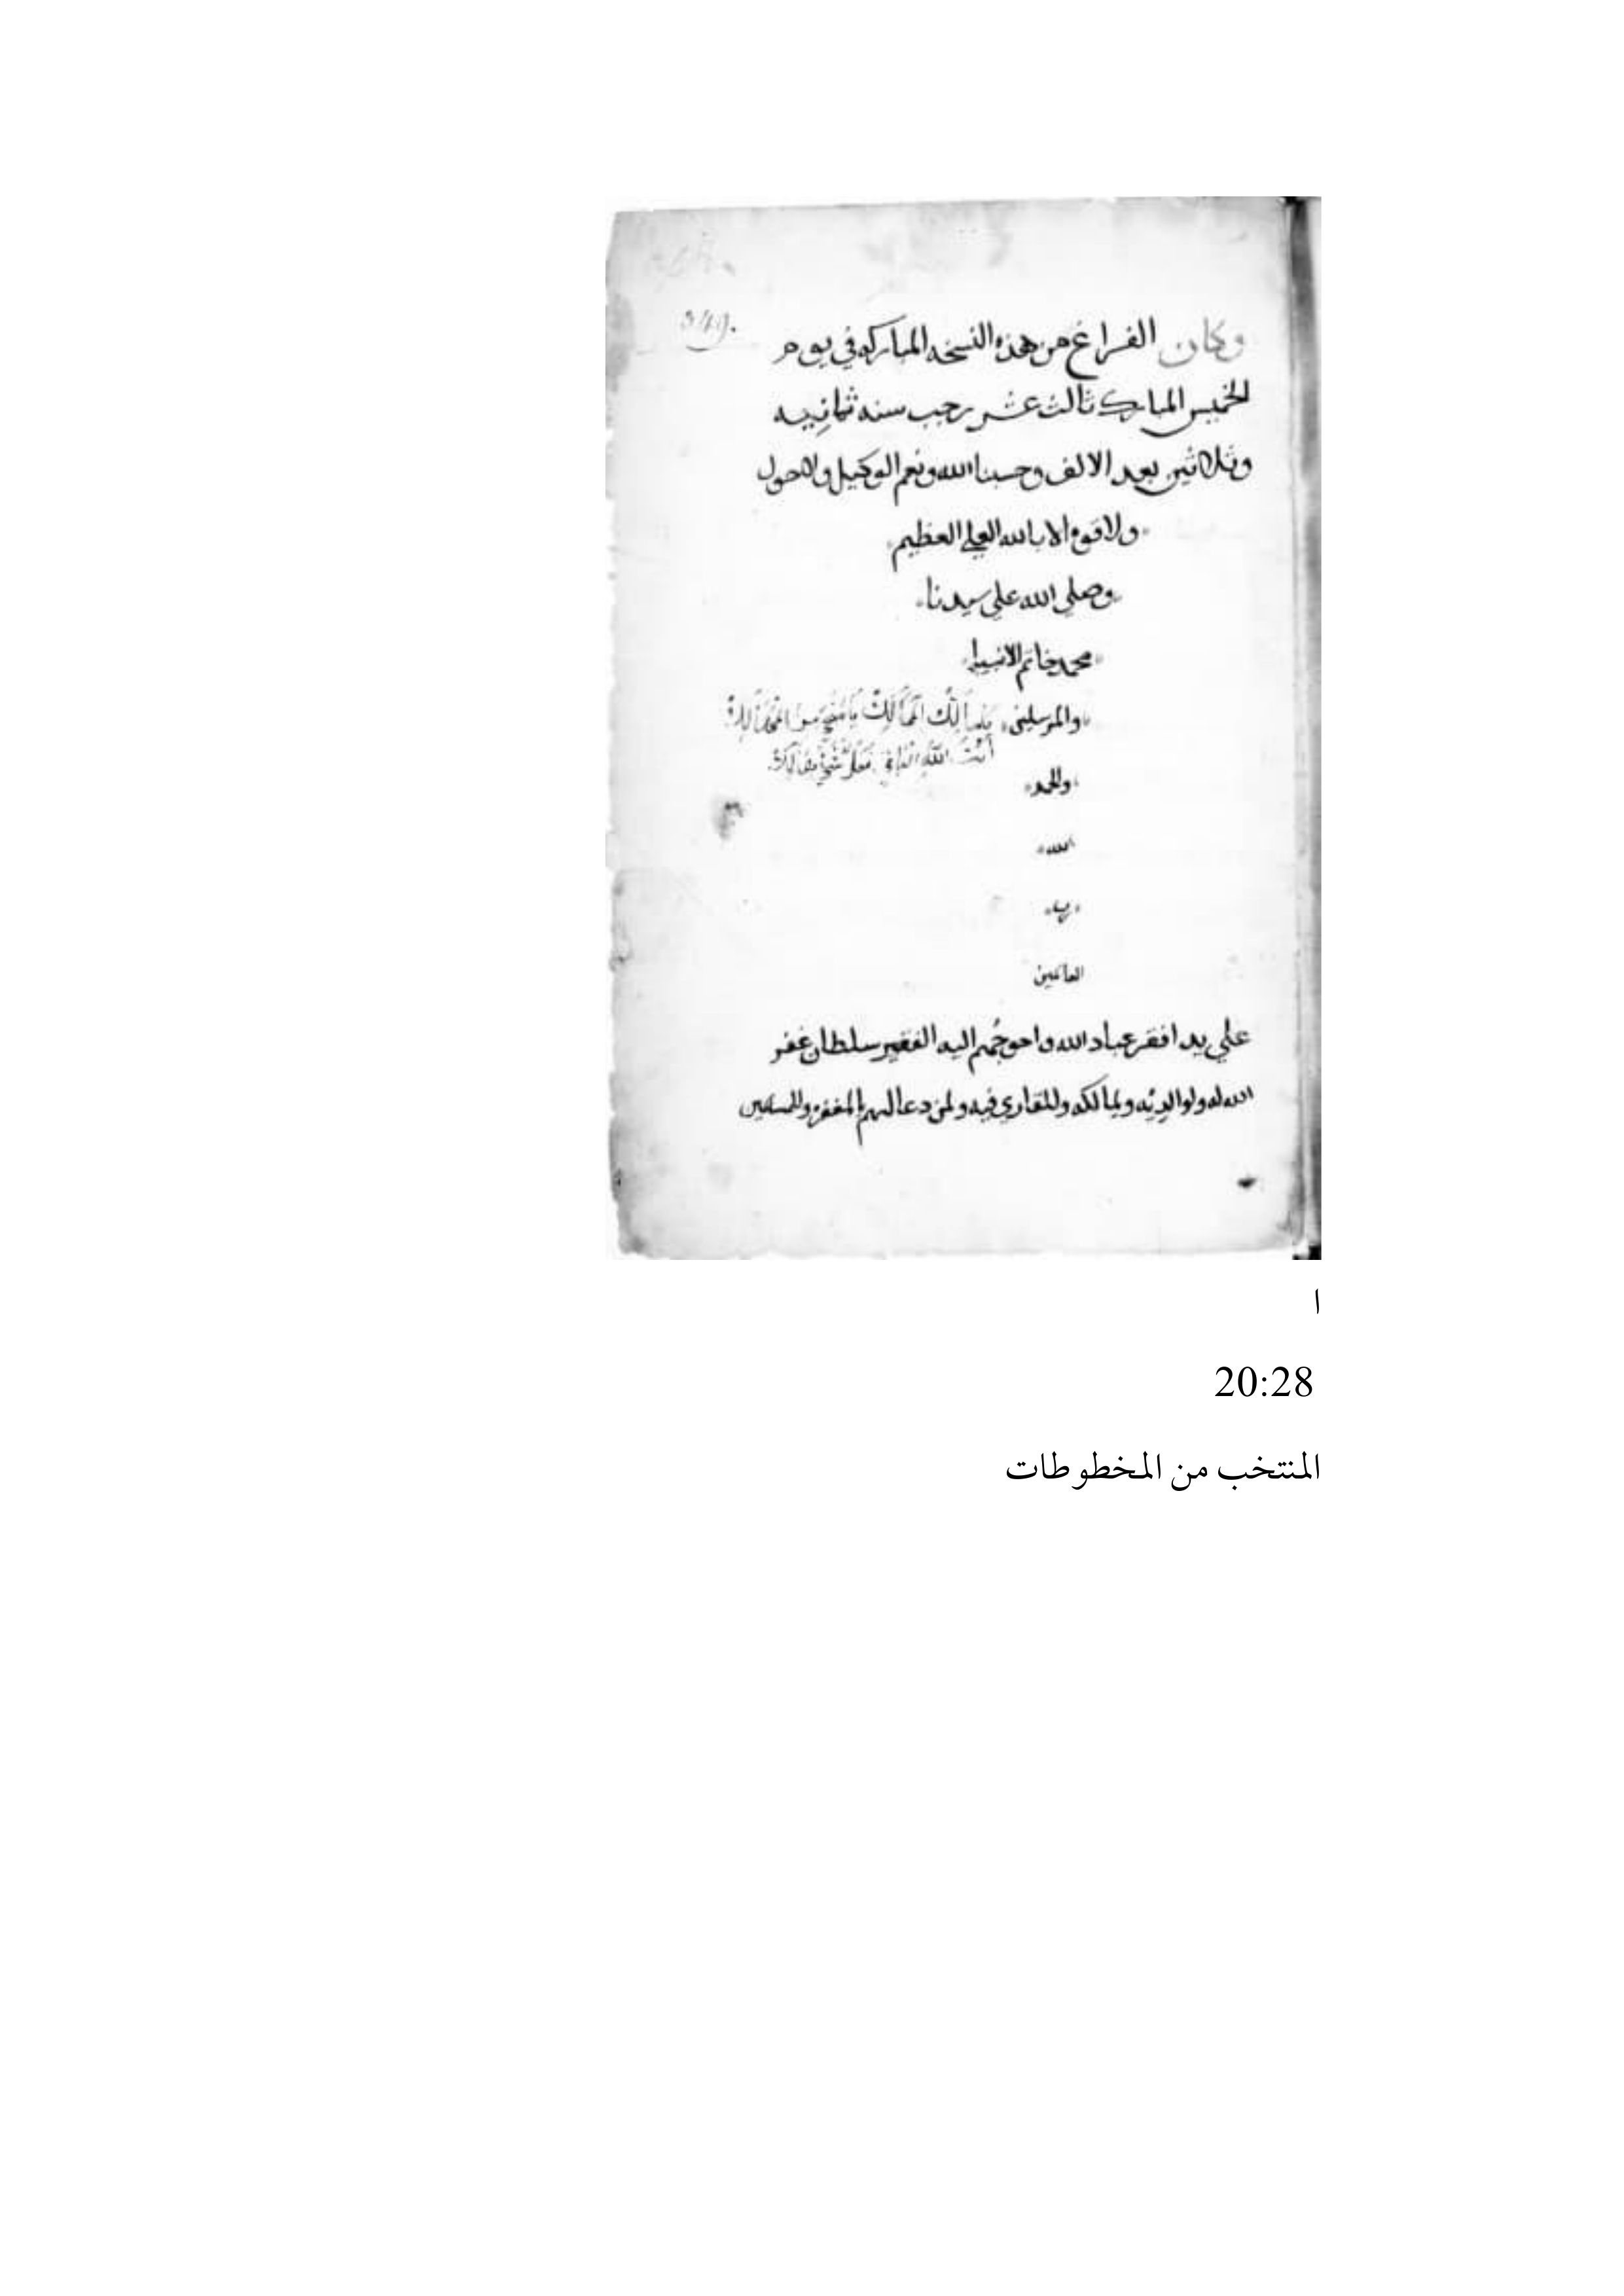 وكان الفراغ من هذه النسخه المباركه في يوم
الخميس المبارك ثالث عشر رجب سنه ثمانيه
وثلاثين بعد الالف وحسبنا الله ونعم الوكيل ولا حول
ولا قوه الا بالله العلي العظيم
وصلي الله علي سيدنا
محمد خاتم الانبيا
والمرسلين
يا مالك الممالك يا منجي من المهالك
انت الله الباقي وكل شيء هالك
والحمد
لله
رب
العالمين
علي يد افقر عباد الله واحوجُهم اليه الفقير سلطان غفر
الله له ولوالديه ولمالكه وللقاري فيه ولمن دعا لهم بالمغفره وللمسلمين
ا
20:28
المنتخب من المخطوطات